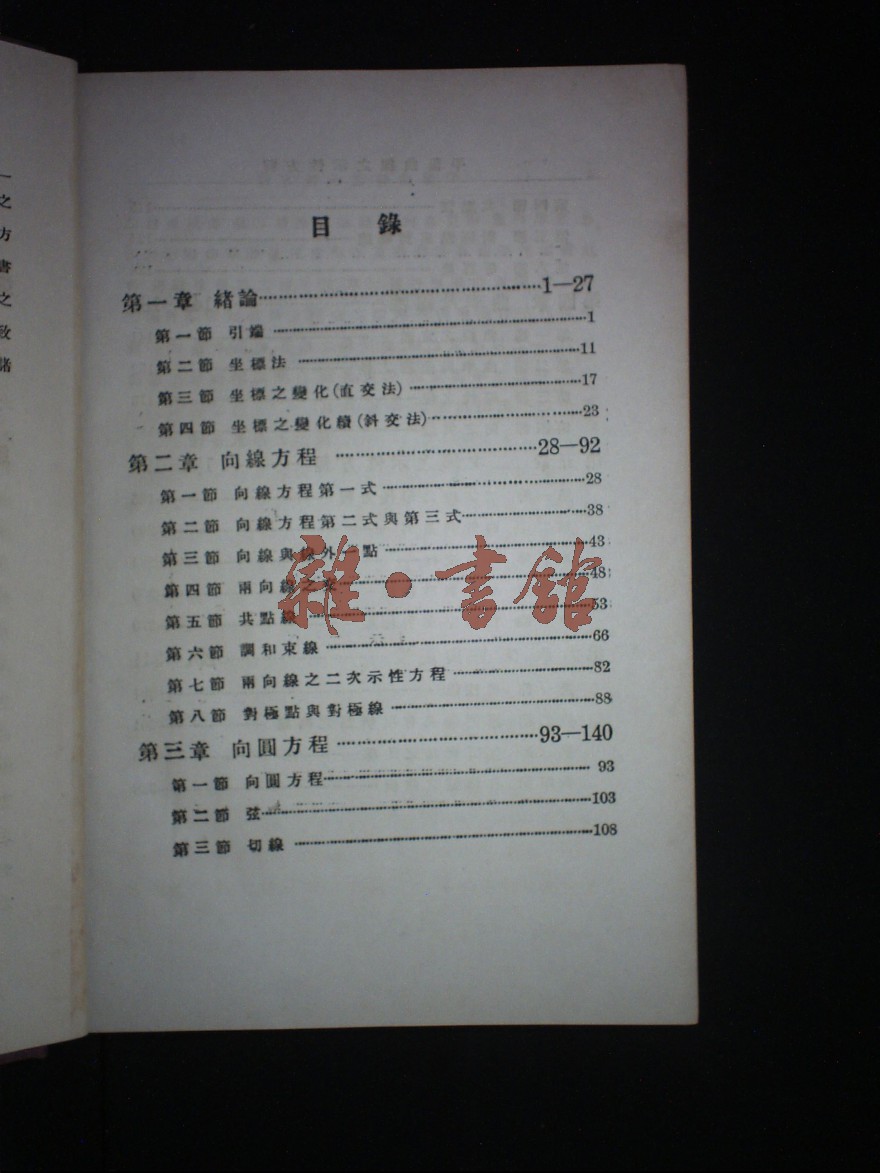 目錄
第一章 緒論……1—27
第一節 引端……1
第二節 坐標法……11
第三節 坐標之變化(直交法)……17
第四節 坐標之變化續(斜交法)……23
第二章 向線方程……28—92
第一節 向線方程第一式……28
第二節 向線方程第二式與第三式……38
第三節 向線與線外一點……43
第四節 兩向線之交……48
第五節 共點線……53
第六節 調和束線……66
第七節 兩向線之二次示性方程……82
第八節 對極點與對極線……88
第三章 向圓方程……93—140
第一節 向圓方程……93
第二節 弦……103
第三節 切線……108
雜·書館
之
方
書
之
致